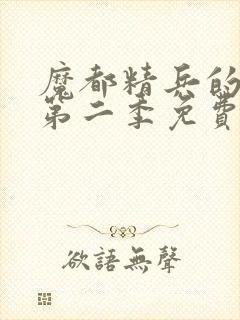 魔都精兵的
第二季免費
欲語無聲